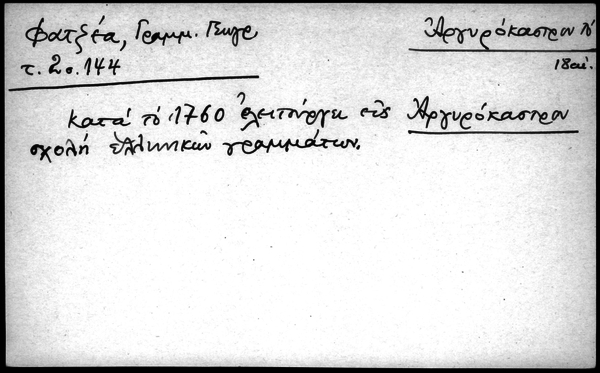 Φατζέα, Γραμμ. Γεωγρ
τ. 2 σ. 144
Ἀργυρόκαστρον τό
18 αἰ.
κατά τό 1760 ἐλειτούργει εἰς Ἀργυρόκαστρον
σχολή ἑλληνικῶν γραμμάτων.